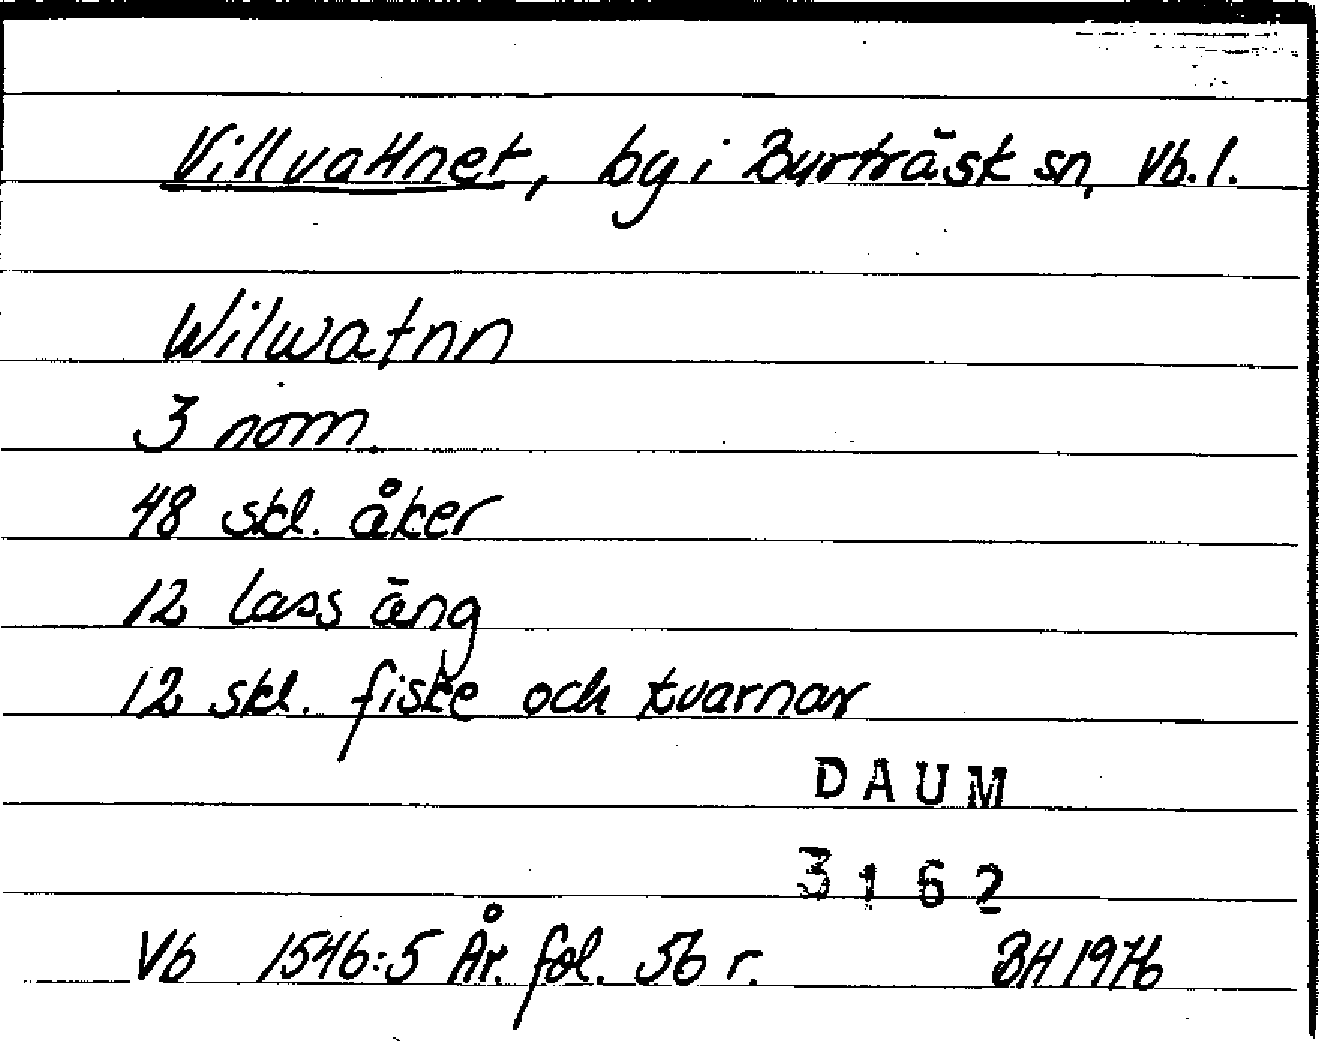 Villvattnet, by i Burträsk sn, Vb.l.
Wilwatnn
3 nom.
48 skl. åker
12 lass äng
12 skl. fiske och kvarnar
DAUM
3162
Vb 1546:5 År. fol. 56 r. BH 1976